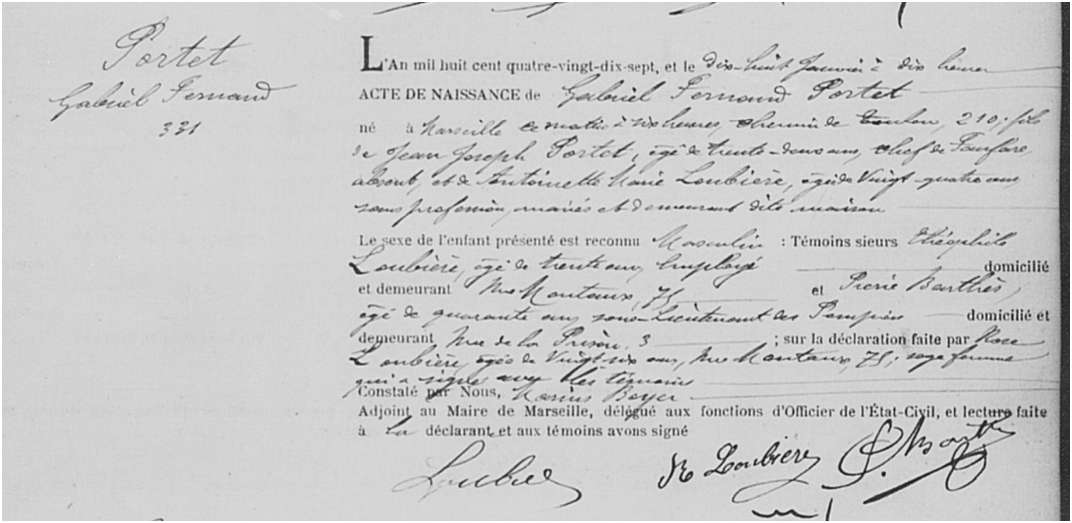 Portet
Gabriel Fernand
331
L'An mil huit cent quatre-vingt-dix-sept, et le dix-huit Janvier à dix heures
ACTE DE NAISSANCE de Gabriel Fernand Portet
né à Marseille ce matin à six heures, chemin de Toulon, 210; fils
de Jean Joseph Portet, âgé de trente-deux ans, chef de Fanfare,
absent, et de Antoinette Marie Loubière, âgée de Vingt-quatre ans
sans profession, mariés et demeurant dite maison
Le sexe de l'enfant présenté est reconnu Masculin : Témoins sieurs Théophile
Loubière, âgé de trente ans, Employé domicilié
et demeurant Rue Montaux, 75 et Pierre Barthès,
âgé de quarante ans sous-Lieutenant des Pompiers domicilié et
demeurant Rue de la Prison, 3 ; sur la déclaration faite par Rose
Loubière, âgée de Vingt-six ans, Rue Montaux, 75; sage femme
qui a signé avec les témoins
Constaté par Nous, Marius Boyer
Adjoint au Maire de Marseille, délégué aux fonctions d'Officier de l'État-Civil, et lecture faite
à la déclarant et aux témoins avons signé
R Loubière